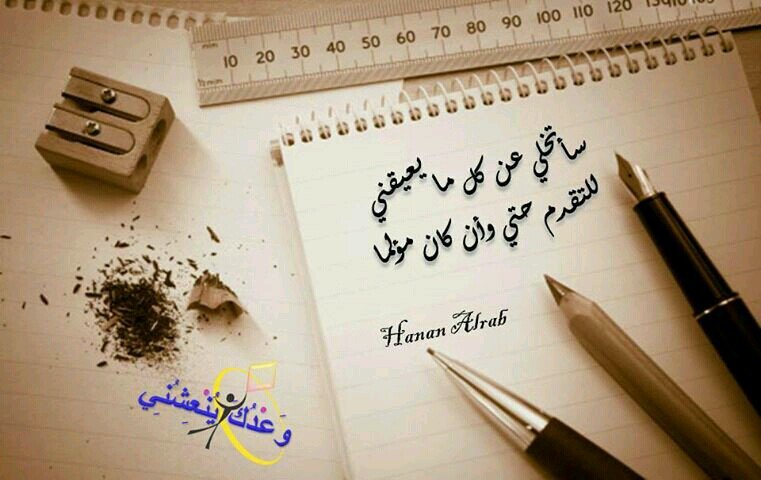 mm 10 20 30 40 50 60 70 80 90 100 110 120
سأتخلي عن كل ما يعيقني
للتقدم حتي وأن كان مؤلما
Hanan Alrab
وَعْدُكَ يُنْعِشُنِي